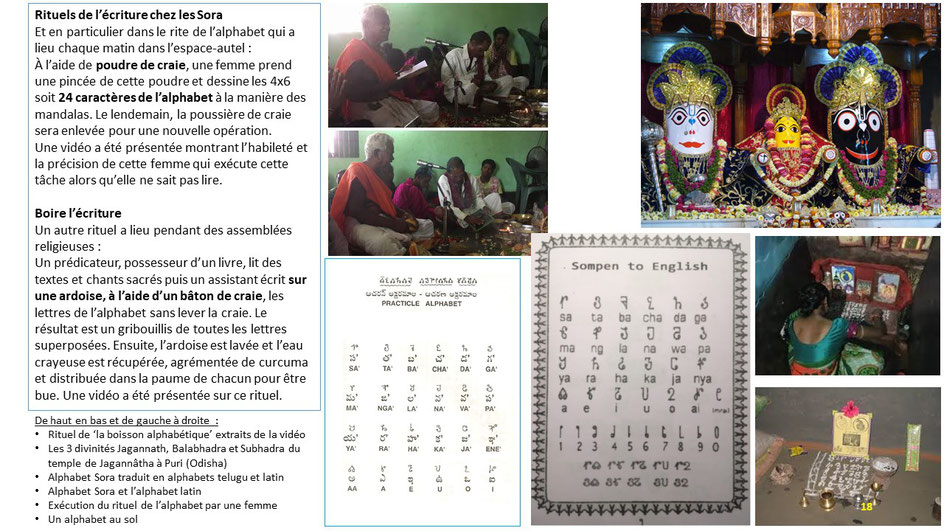 Rituels de l’écriture chez les Sora
Et en particulier dans le rite de l’alphabet qui a
lieu chaque matin dans l’espace-autel :
À l’aide de poudre de craie, une femme prend
une pincée de cette poudre et dessine les 4x6
soit 24 caractères de l’alphabet à la manière des
mandalas. Le lendemain, la poussière de craie
sera enlevée pour une nouvelle opération.
Une vidéo a été présentée montrant l’habileté et
la précision de cette femme qui exécute cette
tâche alors qu’elle ne sait pas lire.
Boire l’écriture
Un autre rituel a lieu pendant des assemblées
religieuses :
Un prédicateur, possesseur d’un livre, lit des
textes et chants sacrés puis un assistant écrit sur
une ardoise, à l’aide d’un bâton de craie, les
lettres de l’alphabet sans lever la craie. Le
résultat est un gribouillis de toutes les lettres
superposées. Ensuite, l’ardoise est lavée et l’eau
crayeuse est récupérée, agrémentée de curcuma
et distribuée dans la paume de chacun pour être
bue. Une vidéo a été présentée sur ce rituel.
De haut en bas et de gauche à droite :
• Rituel de ‘la boisson alphabétique’ extraits de la vidéo
• Les 3 divinités Jagannath, Balabhadra et Subhadra du
temple de Jagannâtha à Puri (Odisha)
• Alphabet Sora traduit en alphabets telugu et latin
• Alphabet Sora et l’alphabet latin
• Exécution du rituel de l’alphabet par une femme
• Un alphabet au sol
PRACTICLE ALPHABET
SA' TA' BA' CHA' DA' GA'
MA' NGA' LA' NA' VA' PA'
YA' RA' HA' KA' JA' ENE'
AA A E U O I
Sompen to English
sa ta ba cha da ga
ma ng la na wa pa
ya ra ha ka ja nya
a e i u o al
1 2 3 4 5 6 7 8 9 0
18